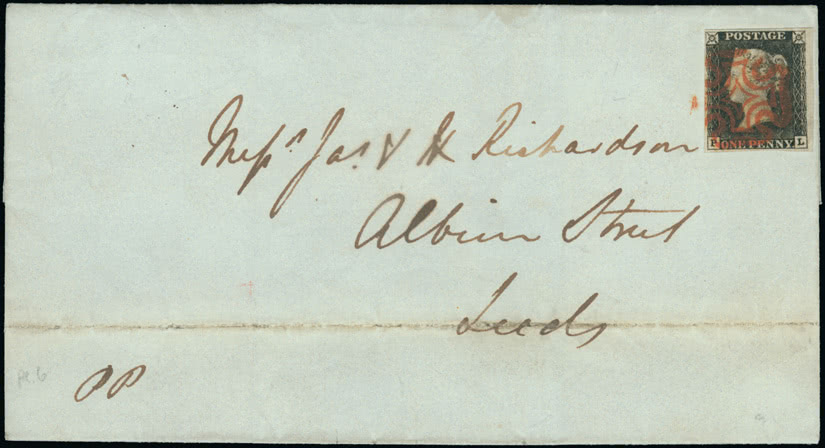 POSTAGE
ONE PENNY L
Messrs Jas & H Richardson
Albion Street
Leeds
pl. 6
PP